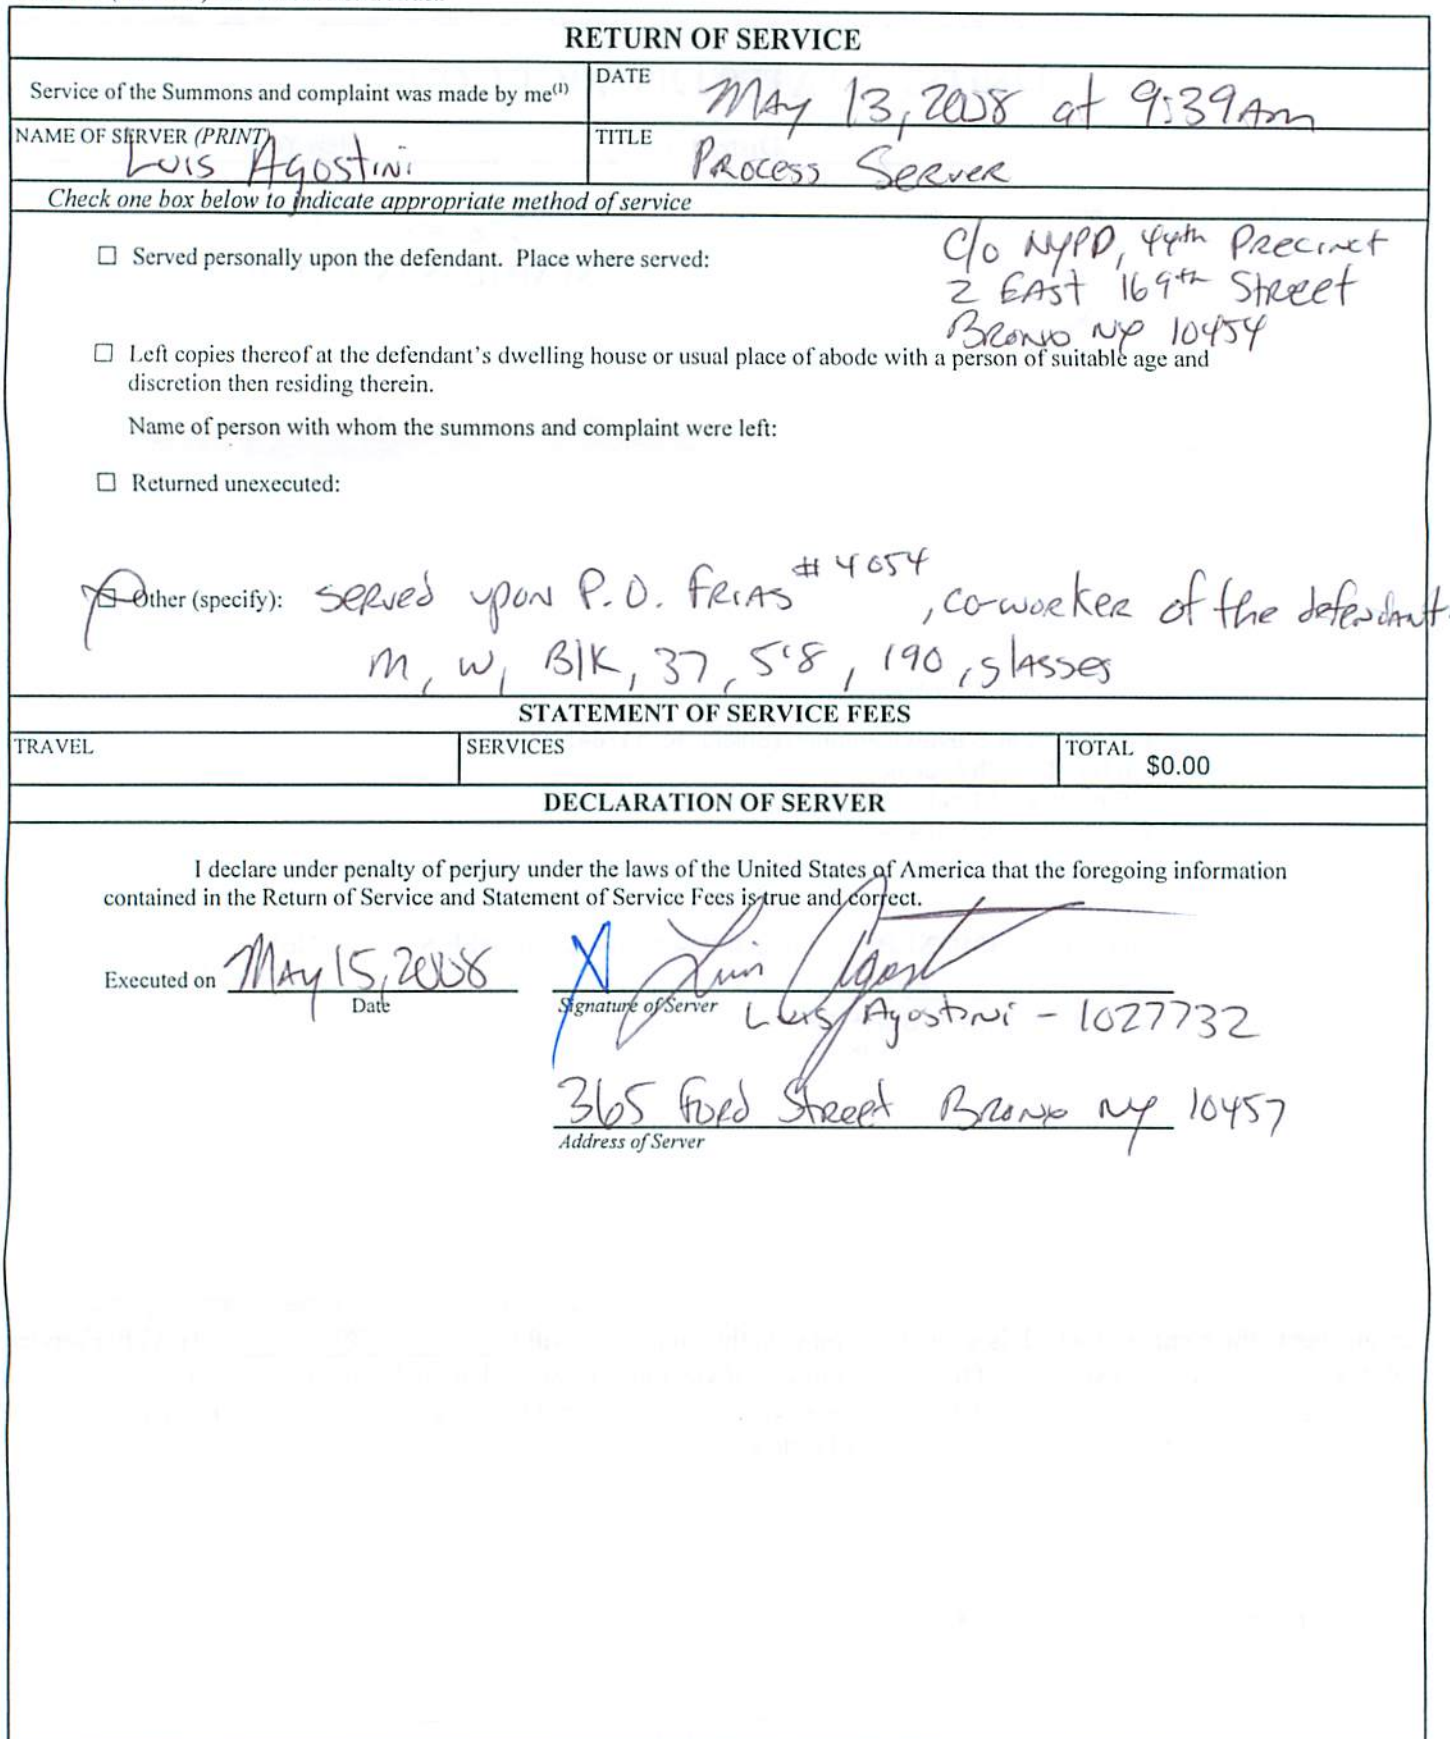 RETURN OF SERVICE
Service of the Summons and complaint was made by me(1)
DATE
May 13, 2008 at 9:39Am
NAME OF SERVER (PRINT)
Luis Agostini
TITLE
Process Server
Check one box below to indicate appropriate method of service
☐ Served personally upon the defendant. Place where served:
C/o NYPD, 44th Precinct
2 East 169th Street
Bronx NY 10454
☐ Left copies thereof at the defendant's dwelling house or usual place of abode with a person of suitable age and
discretion then residing therein.
Name of person with whom the summons and complaint were left:
☐ Returned unexecuted:
Other (specify): served upon P.O. Frias #4054, co-worker of the defendant.
M, W, Blk, 37, 5'8, 190, glasses
STATEMENT OF SERVICE FEES
TRAVEL
SERVICES
TOTAL
$0.00
DECLARATION OF SERVER
I declare under penalty of perjury under the laws of the United States of America that the foregoing information
contained in the Return of Service and Statement of Service Fees is true and correct.
Executed on May 15, 2008
X Luis Agost
Date
Signature of Server
Luis Agostini - 1027732
365 Ford Street Bronx NY 10457
Address of Server